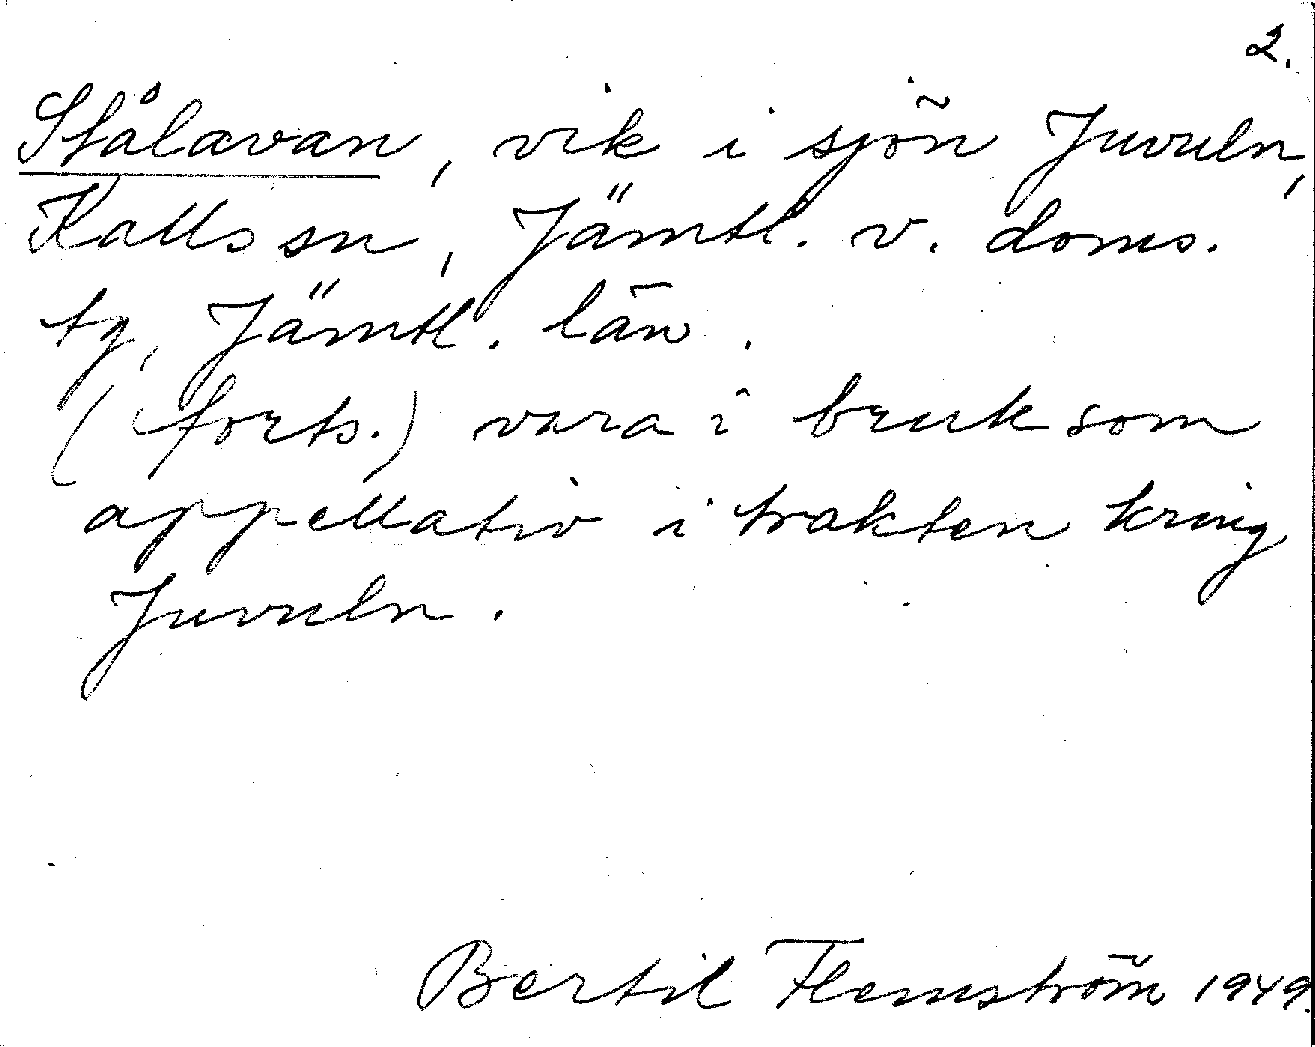 2.
Stålavan, vik i sjön Juvuln,
Kalls sn, Jämtl. v. doms.
tg, Jämtl. län.
(forts.) vara i bruk som
appellativ i trakten kring
Juvuln.
Bertil Flemström 1949.